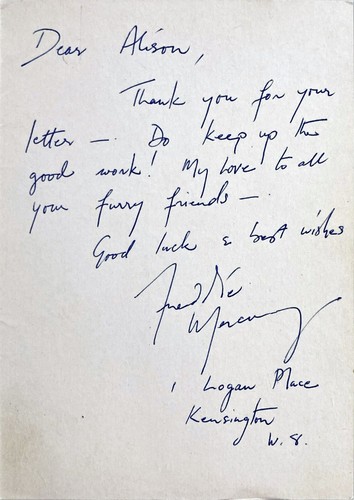 Dear Alison,
Thank you for your
letter —. Do keep up the
good work! My love to all
your furry friends —.
Good luck & best wishes
Freddie
Mercury
1 Logan Place
Kensington
W.8.